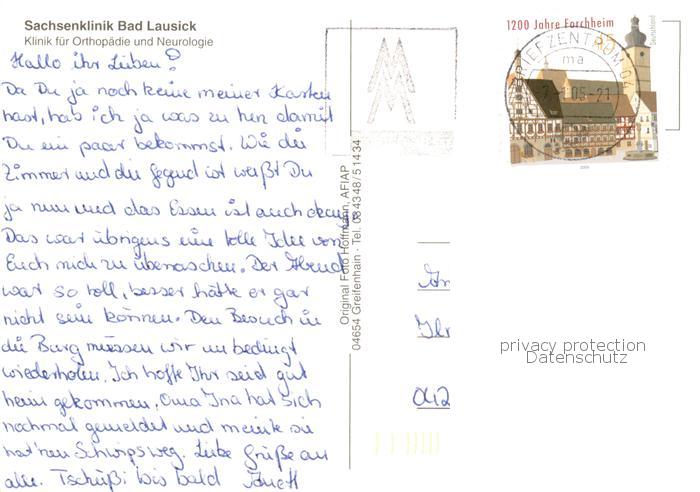 Sachsenklinik Bad Lausick
Klinik für Orthopädie und Neurologie
Hallo ihr Lieben!
Da Du ja noch keine meiner Karten
hast, hab ich ja was zu tun damit
Du ein paar bekommst. Wie die
Zimmer und die Gegend ist weißt Du
ja nun und das Essen ist auch okay.
Das war übrigens eine tolle Idee von
Euch mich zu überraschen. Der Abend
war so toll, besser hätte er gar
nicht sein können. Den Besuch in
die Burg müssen wir unbedingt
wiederholen. Ich hoffe Ihr seid gut
heim gekommen. Oma Ina hat sich
nochmal gemeldet und meinte sie
hat 'nen Schwips weg. Liebe Grüße an
alle. Tschüßi bis bald
Original Foto Hoffmann, AFIAP
04654 Greifenhain · Tel. 034348/51434
1200 Jahre Forchheim
Deutschland
BRIEFZENTRUM 04
ma
05-21
An
042
privacy protection
Datenschutz